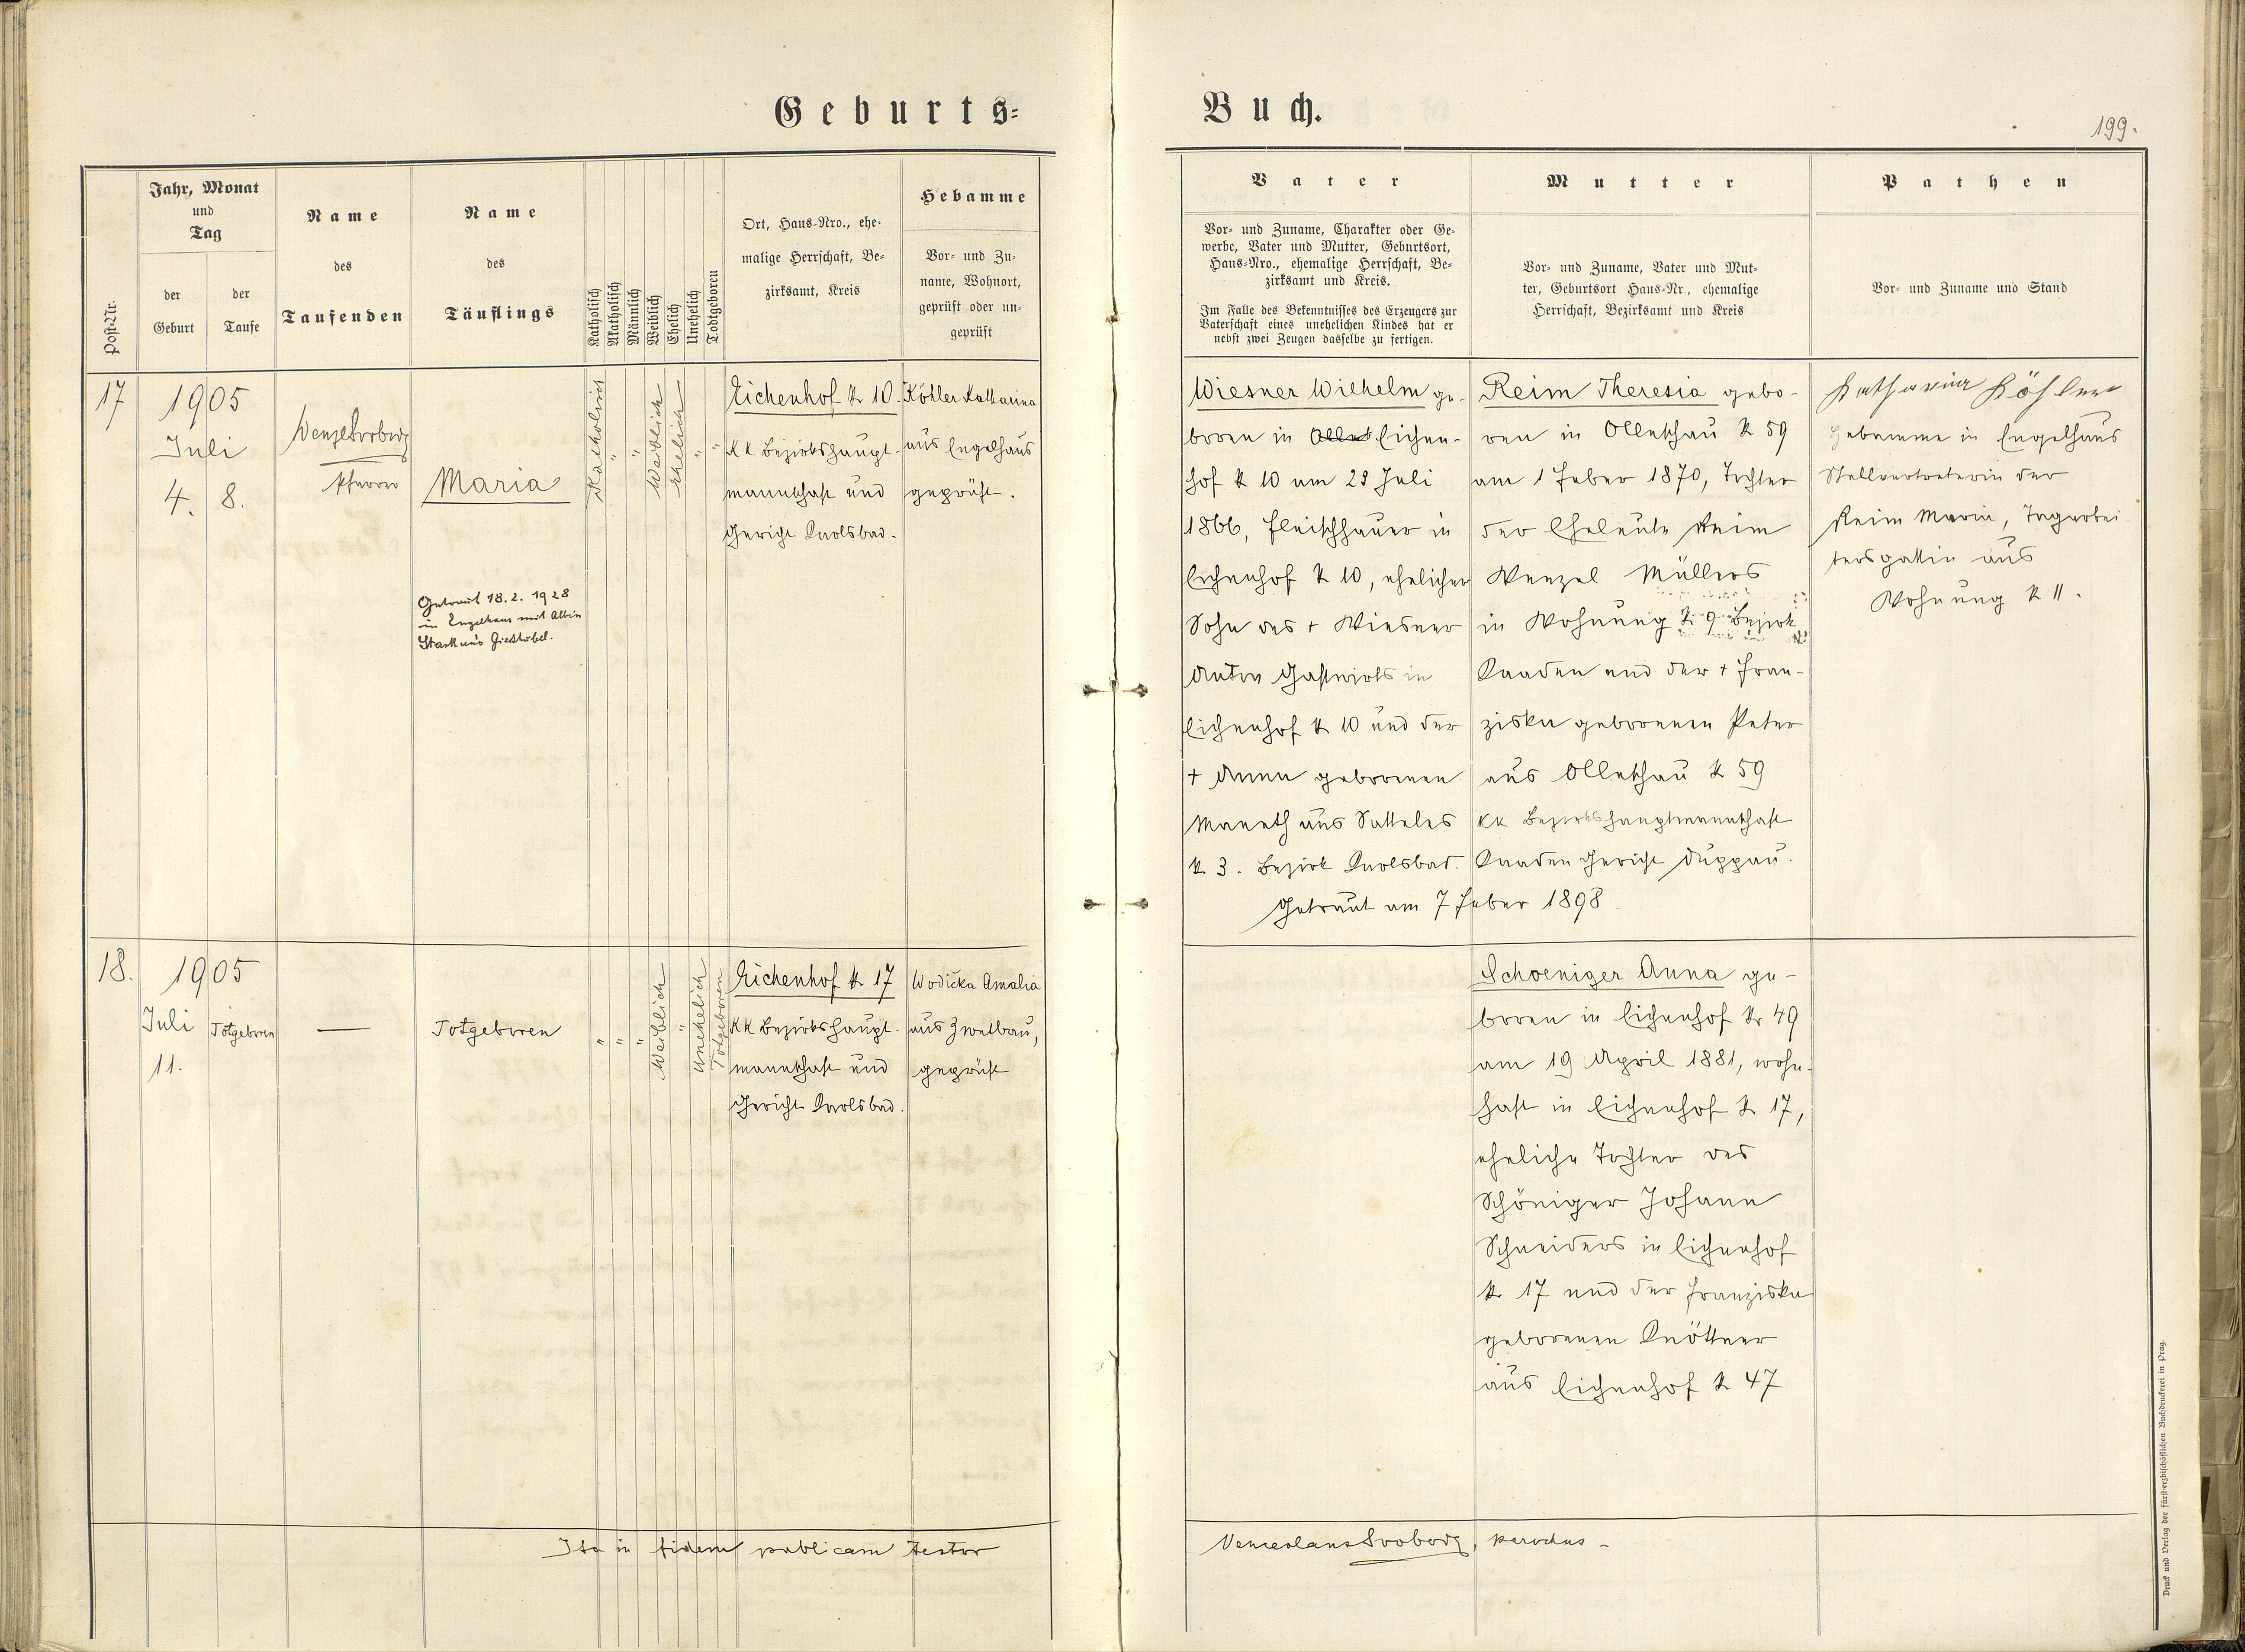 Geburts-
Buch.
199.
Post-Nr.
Jahr, Monat
und
Tag
der
Geburt
der
Taufe
Name
des
Taufenden
Name
des
Täuflings
Katholisch
Akatholisch
Männlich
Weiblich
Ehelich
Unehelich
Todtgeboren
Ort, Haus-Nro., ehe-
malige Herrschaft, Be-
zirksamt, Kreis
Hebamme
Vor- und Zu-
name, Wohnort,
geprüft oder un-
geprüft
Vater
Vor- und Zuname, Charakter oder Ge-
werbe, Vater und Mutter, Geburtsort,
Haus-Nro., ehemalige Herrschaft, Be-
zirksamt und Kreis.
Im Falle des Bekenntnisses des Erzeugers zur
Vaterschaft eines unehelichen Kindes hat er
nebst zwei Zeugen dasselbe zu fertigen.
Mutter
Vor- und Zuname, Vater und Mut-
ter, Geburtsort Haus-Nr., ehemalige
Herrschaft, Bezirksamt und Kreis
Pathen
Vor- und Zuname und Stand
17
1905
Juli
4.
8.
Wenzel Svoboda
Pfarrer
Maria
Getraut 18.2. 1928
in Engelhaus mit Albin
Stark aus Gießhübel.
Katholisch
"
"
Weiblich
Ehelich
"
"
Eichenhof N 10.
KK Bezirkshaupt-
mannschaft und
Gericht Karlsbad.
Köhler Katharina
aus Engelhaus
geprüft.
Wiesner Wilhelm ge-
boren in Eichen-
hof N 10 am 29 Juli
1866, Fleischhauer in
Eichenhof N 10, ehelicher
Sohn des + Wiesner
Anton Gastwirts in
Eichenhof N 10 und der
+ Anna geborenen
Maneth aus Satteles
N 3. Bezirk Karlsbad.
Getraut am 7 Feber 1898
Reim Theresia gebo-
ren in Olleschau N 59
am 1 Feber 1870, Tochter
der Eheleute Reim
Wenzel Müllers
in Wohnung N 9 Bezirk
Kaaden und der + Fran-
ziska geborenen Peter
aus Olleschau N 59
KK Bezirkshauptmannschaft
Kaaden Gericht Duppau.
Katharina Köhler
Hebamme in Engelhaus
Stellvertreterin der
Reim Maria, Tagarbei
tersgattin aus
Wohnung N 11.
18.
1905
Juli
11.
Totgeboren
—
Totgeboren
"
"
"
Weiblich
"
Unehelich
Totgeboren
Eichenhof N 17
KK Bezirkshaupt-
mannschaft und
Gericht Karlsbad.
Wodička Amalia
aus Zwetbau,
geprüft
Schoeniger Anna ge-
boren in Eichenhof Nr 49
am 19 April 1881, wohn-
haft in Eichenhof N 17,
eheliche Tochter des
Schöniger Johann
Schneiders in Eichenhof
N 17 und der Franziska
geborenen Knöttner
aus Eichenhof N 47
Ita in fidem publicam testor
Venceslaus Svoboda, parochus -
Druck und Verlag der fürst-erzbischöflichen Buchdruckerei in Prag.